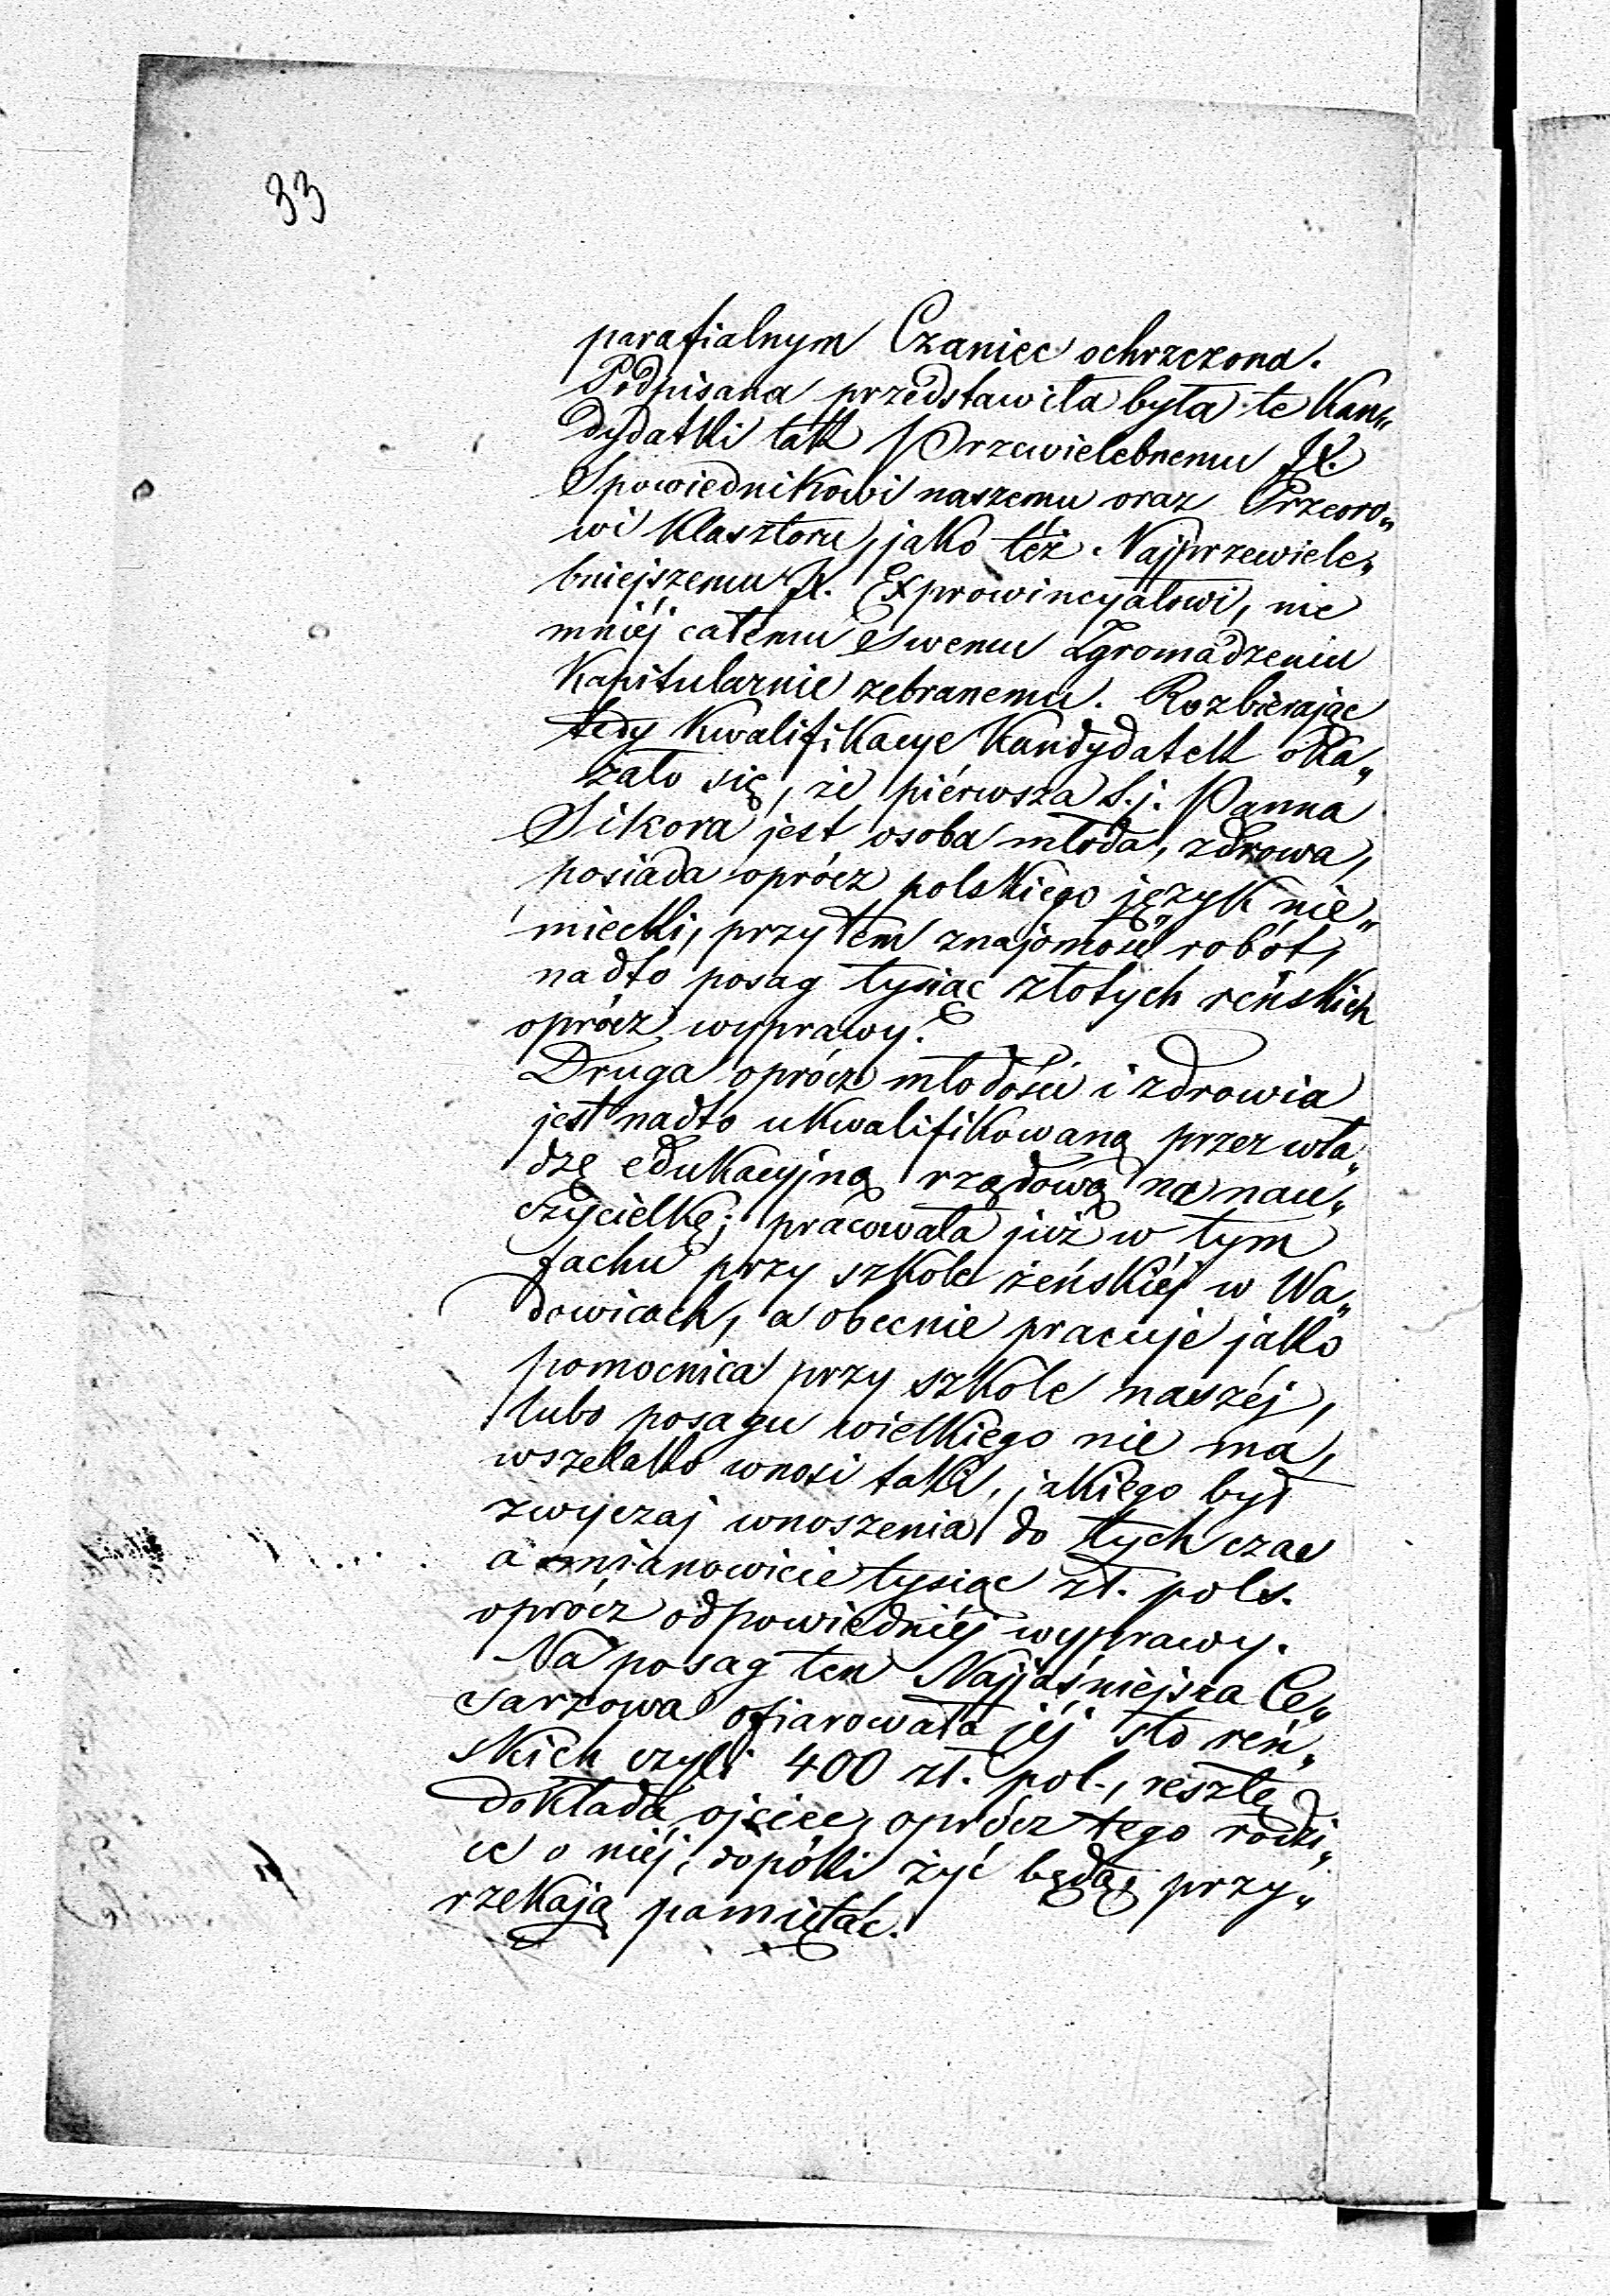 33
parafialnym Czaniec ochrzczona.
Podpisana przedstawiła była te Kan„
dydatki tak Przewielebnemu JX.
Spowiednikowi naszemu oraz Przeoro„
wi Klasztoru, jako też Najprzewiele„
bniejszemu X. Exprowincyałowi, nie
mniéj całemu swemu Zgromadzeniu
Kapitularnie zebranemu. Rozbierając
tedy Kwalifikacye Kandydatek oka„
zało się, że piérwsza t.j. Panna
Sikora jest osoba młoda, zdrowa,
posiada oprócz polskiego język nie„
miecki, przytem znajomość robót,
nadto posag tysiąc złotych reńskich
oprócz wyprawy.
Druga oprócz młodości i zdrowia
jest nadto ukwalifikowaną przez wła„
dzę edukacyjną rządową na nau„
czycielkę; pracowała już w tym
fachu przy szkole żeńskiéj w Wa„
dowicach, a obecnie pracuje jako
pomocnica przy szkole naszéj,
lubo posagu wielkiego nie ma,
wszelako wnosi taki, jakiego był
zwyczaj wnoszenia do tych czas
a mianowicie tysiąc zł. pols.
oprócz odpowiedniéj wyprawy.
Na posag ten Najjaśniejsza Ce„
sarzowa ofiarowała jéj sto reń„
skich czyli 400 zł. pol., resztę
dokłada ojciec, oprócz tego rodzi„
ce o niéj, dopóki żyć będą, przy„
rzekają pamiętać.